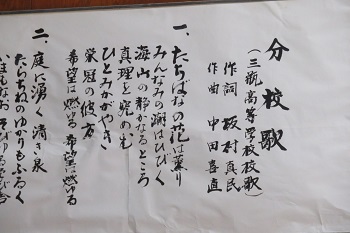 分校歌
(三瓶高等学校校歌)
作詞 坂村真民
作曲 中田喜直
一、たちばなの花は薫り
みんなみの潮はひびく
海山の静かなるところ
真理を究めむ
ひとみかがやき
栄冠の彼方
希望は燃ゆる 希望は燃ゆる
二、庭に湧く清き泉
たらちねのゆかりもふるく